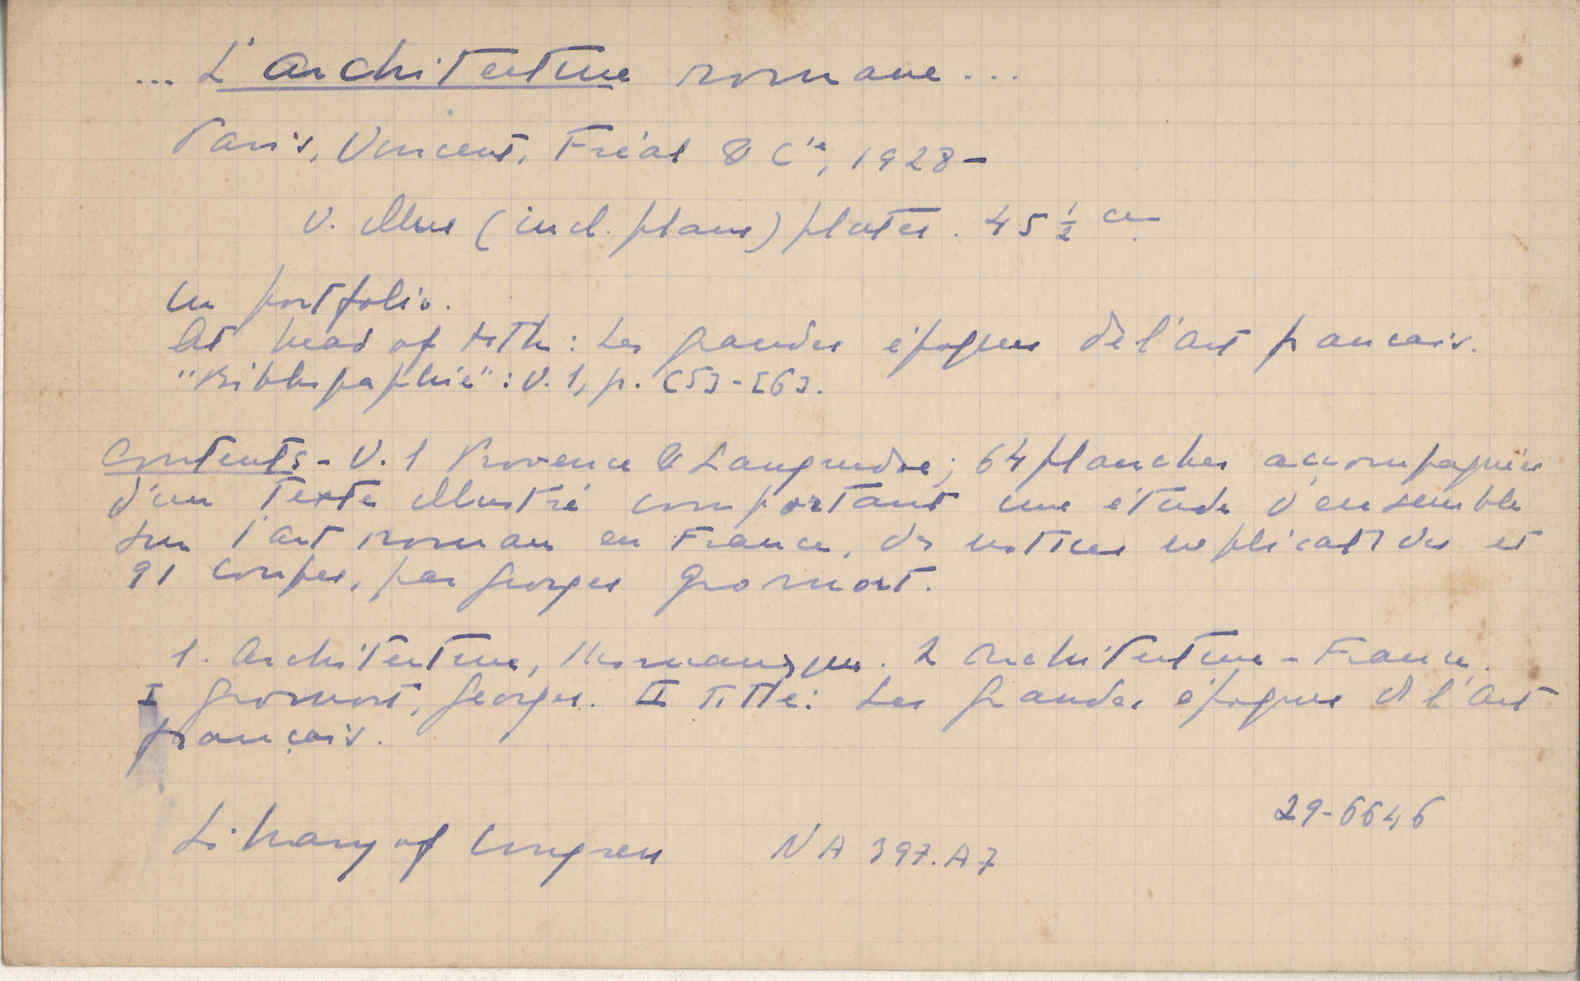 ... L'architecture romane...
Paris, Vincent, Fréal & Cie, 1928-
v. illus (incl. plans) plates. 45 1/2 cm.
In portfolio.
At head of title: Les grandes époques de l'art francais.
"Bibliographie": v. 1, p. [5]-[6].
Contents - V. 1 Provence & Languedoc; 64 planches accompagnées
d'un texte illustré comportant une étude d'ensemble
sur l'art roman en France, des notices explicatives et
91 coupes, par Georges Gromort.
1. Architecture, Romanesque. 2 Architecture - France.
I Gromort, Georges. II Title: Les grandes époques de l'art
français.
29-6646
Library of Congress NA 397.A7